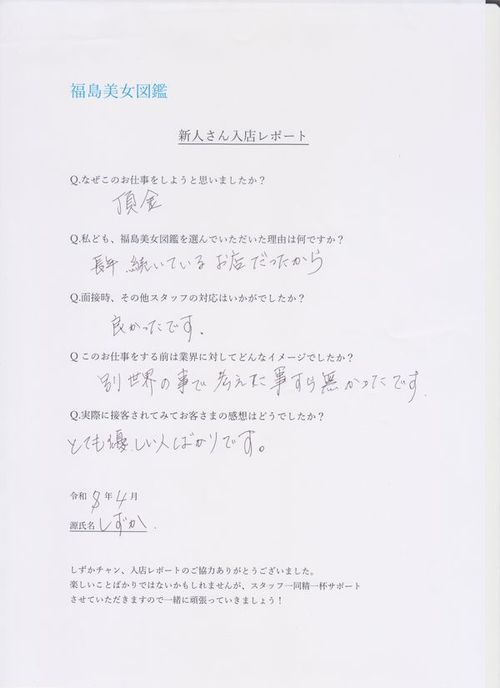 福島美女図鑑
新人さん入店レポート
Q.なぜこのお仕事をしようと思いましたか？
頂金
Q.私ども、福島美女図鑑を選んでいただいた理由は何ですか？
長年続いているお店だったから
Q.面接時、その他スタッフの対応はいかがでしたか？
良かったです.
Q このお仕事をする前は業界に対してどんなイメージでしたか？
別世界の事で考えた事すら無かったです.
Q.実際に接客されてみてお客さまの感想はどうでしたか？
とても優しい人ばかりです。
令和 8 年 4 月
源氏名 しずか.
しずかチャン、入店レポートのご協力ありがとうございました。
楽しいことばかりではないかもしれませんが、スタッフ一同精一杯サポート
させていただきますので一緒に頑張っていきましょう！